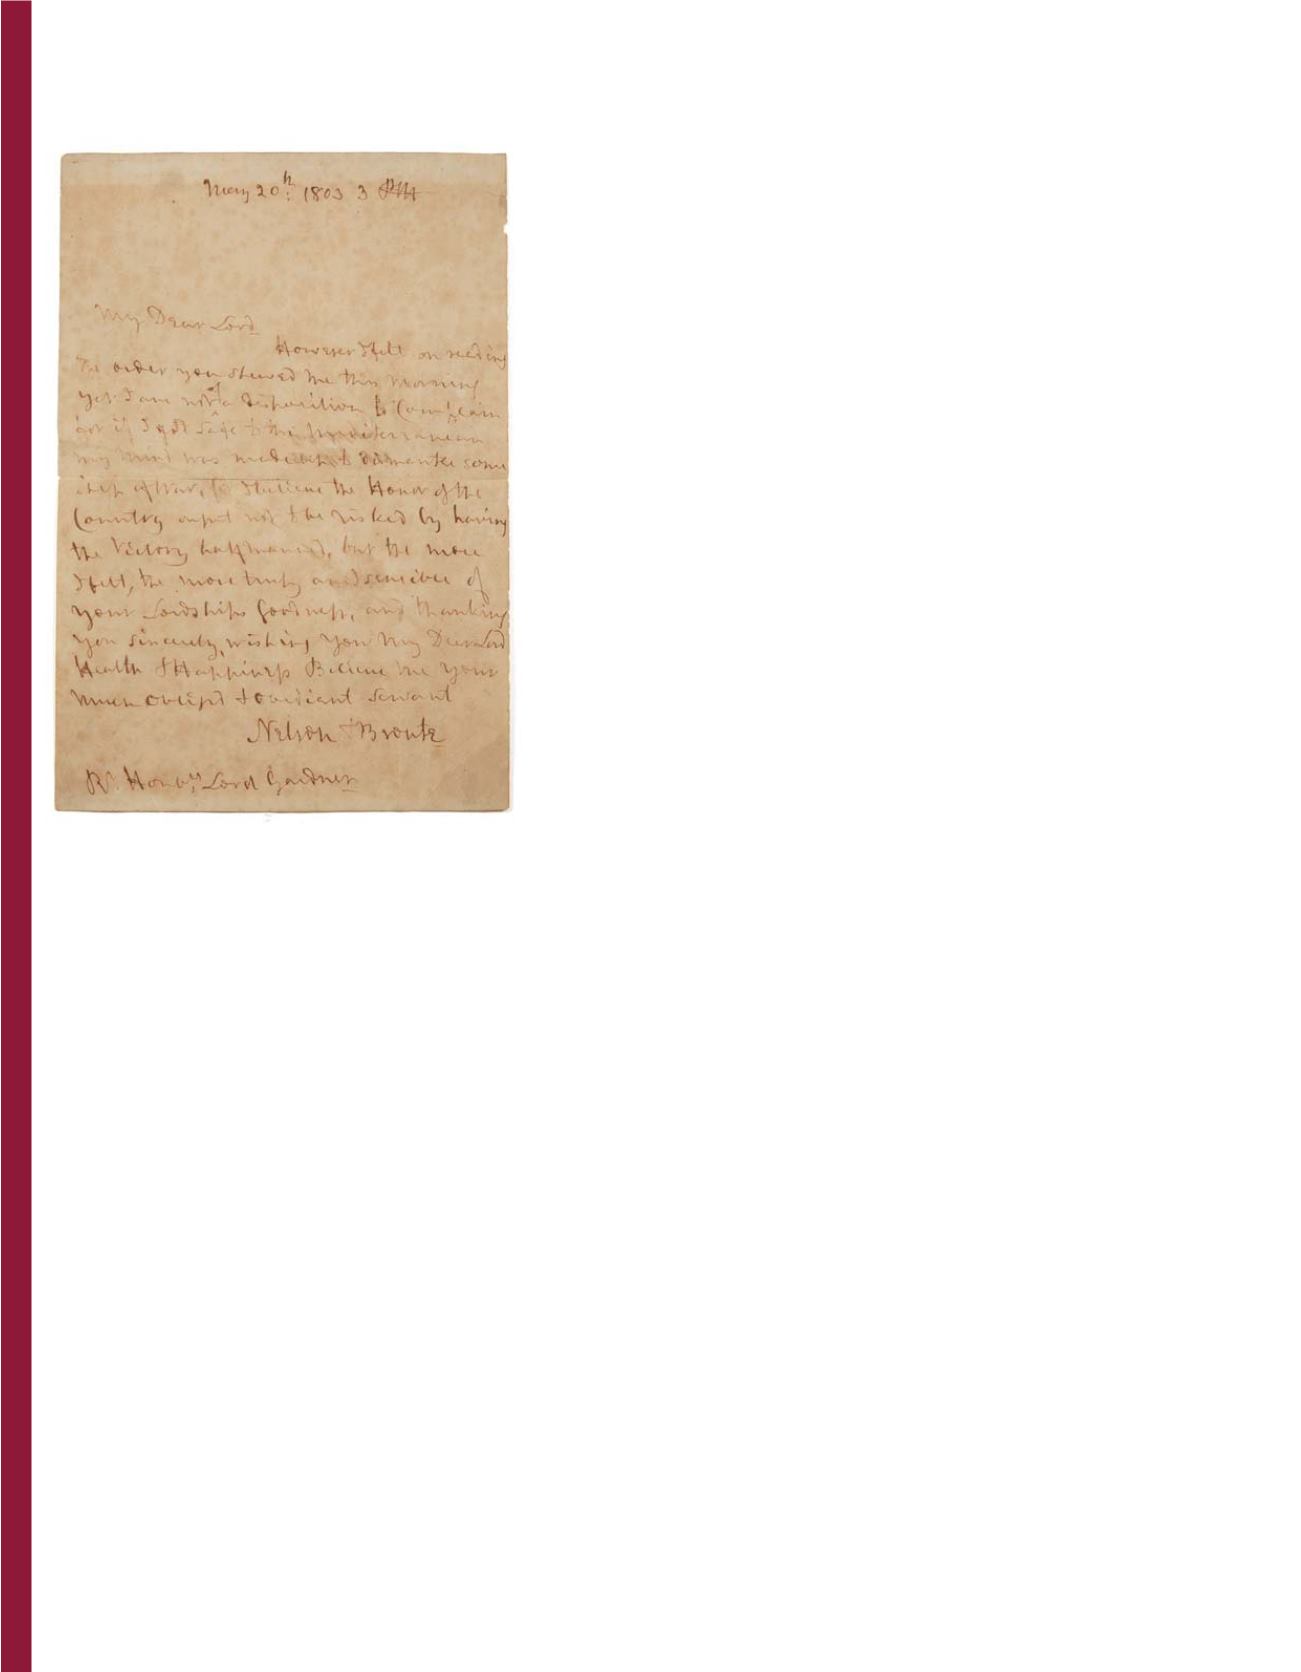 May 20th: 1803 3 PM
My Dear Lord
However I fell on reading
The order you shewed me this morning
yet I am not of a disposition to Complain
for if I got safe to the Mediterranean
my mind was made up to dismantle some
ship of War, for I believe the Honor of the
Country ought not to be risked by having
the Victory half manned, but the more
I fell, the more truly am I sensible of
your Lordships goodness, and thanking
you sincerely, wishing you My Dear Lord
Health & Happiness Believe me your
much obliged & obedient servant
Nelson & Bronte
Rt. Honble. Lord Gardner